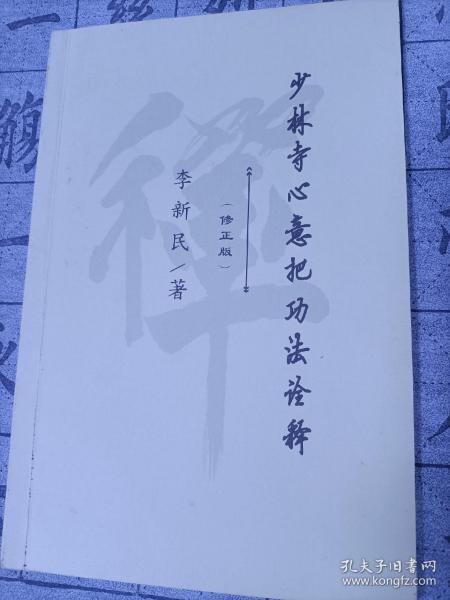 少林寺心意把功法诠释
（修正版）
李新民／著
禅
孔夫子旧书网
www.kongfz.com